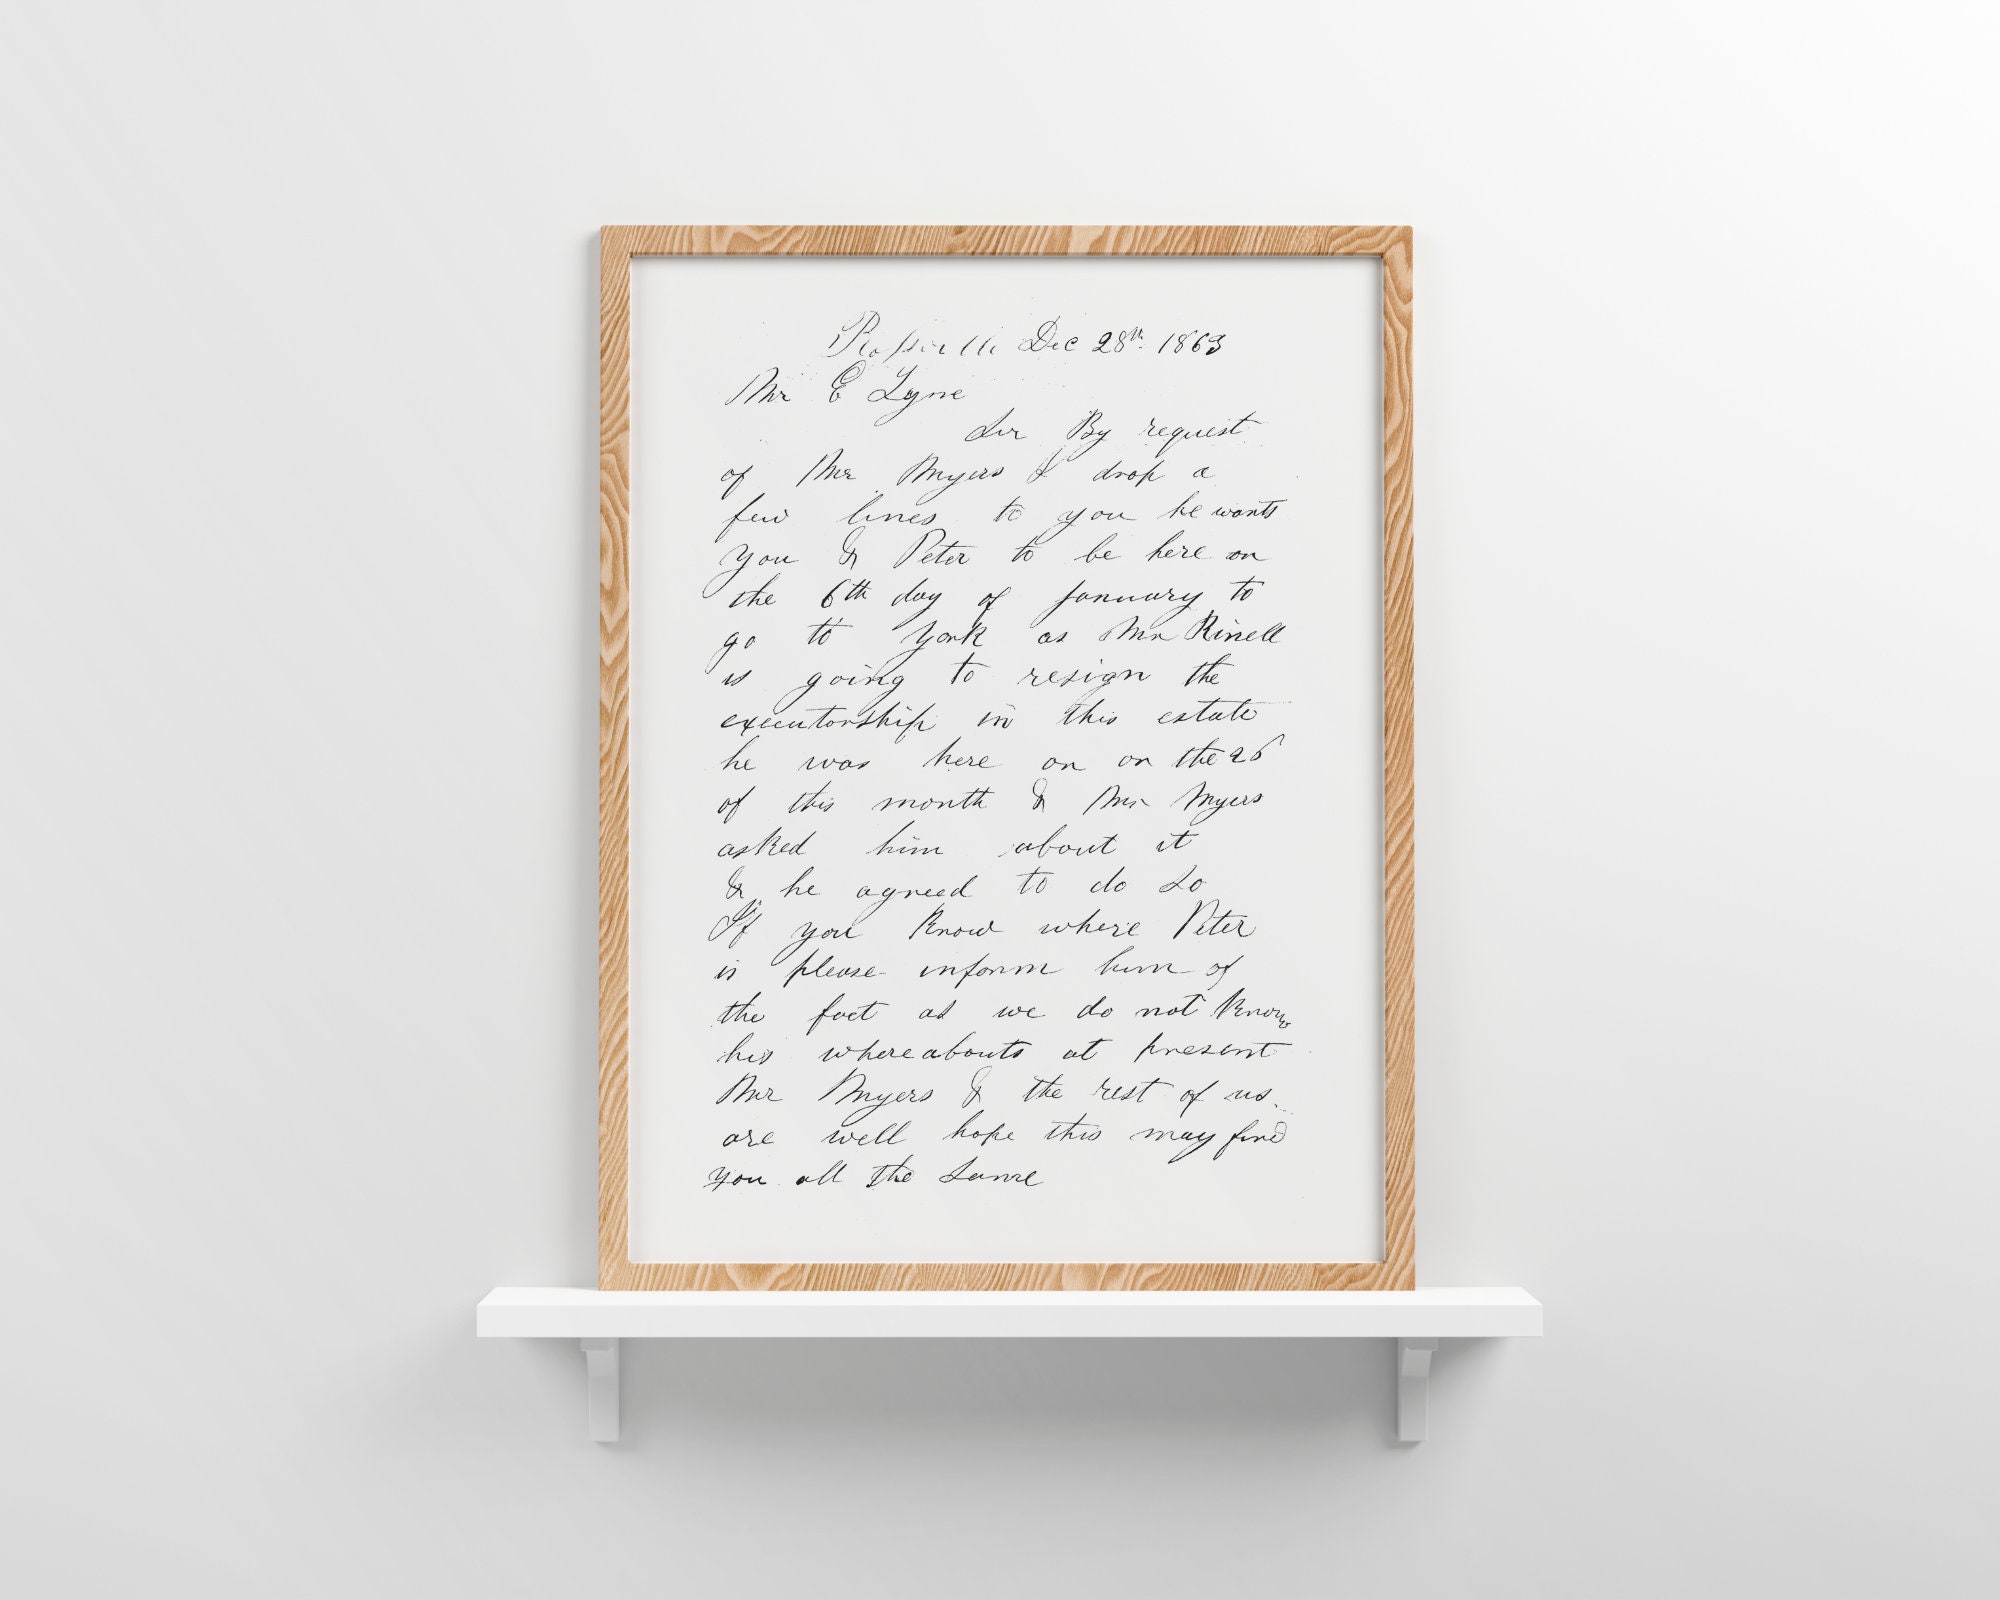 Rossville Dec 28th 1863
Mr E Lyne
Sir By request
of Mr Myers I drop a
few lines to you he wants
you & Peter to be here on
the 6th day of January to
go to York as Mr Rinell
is going to resign the
executorship in this estate
he was here on on the 26
of this month & Mr Myers
asked him about it
& he agreed to do so
If you know where Peter
is please inform him of
the fact as we do not know
his whereabouts at present
Mr Myers & the rest of us
are well hope this may find
you all the same